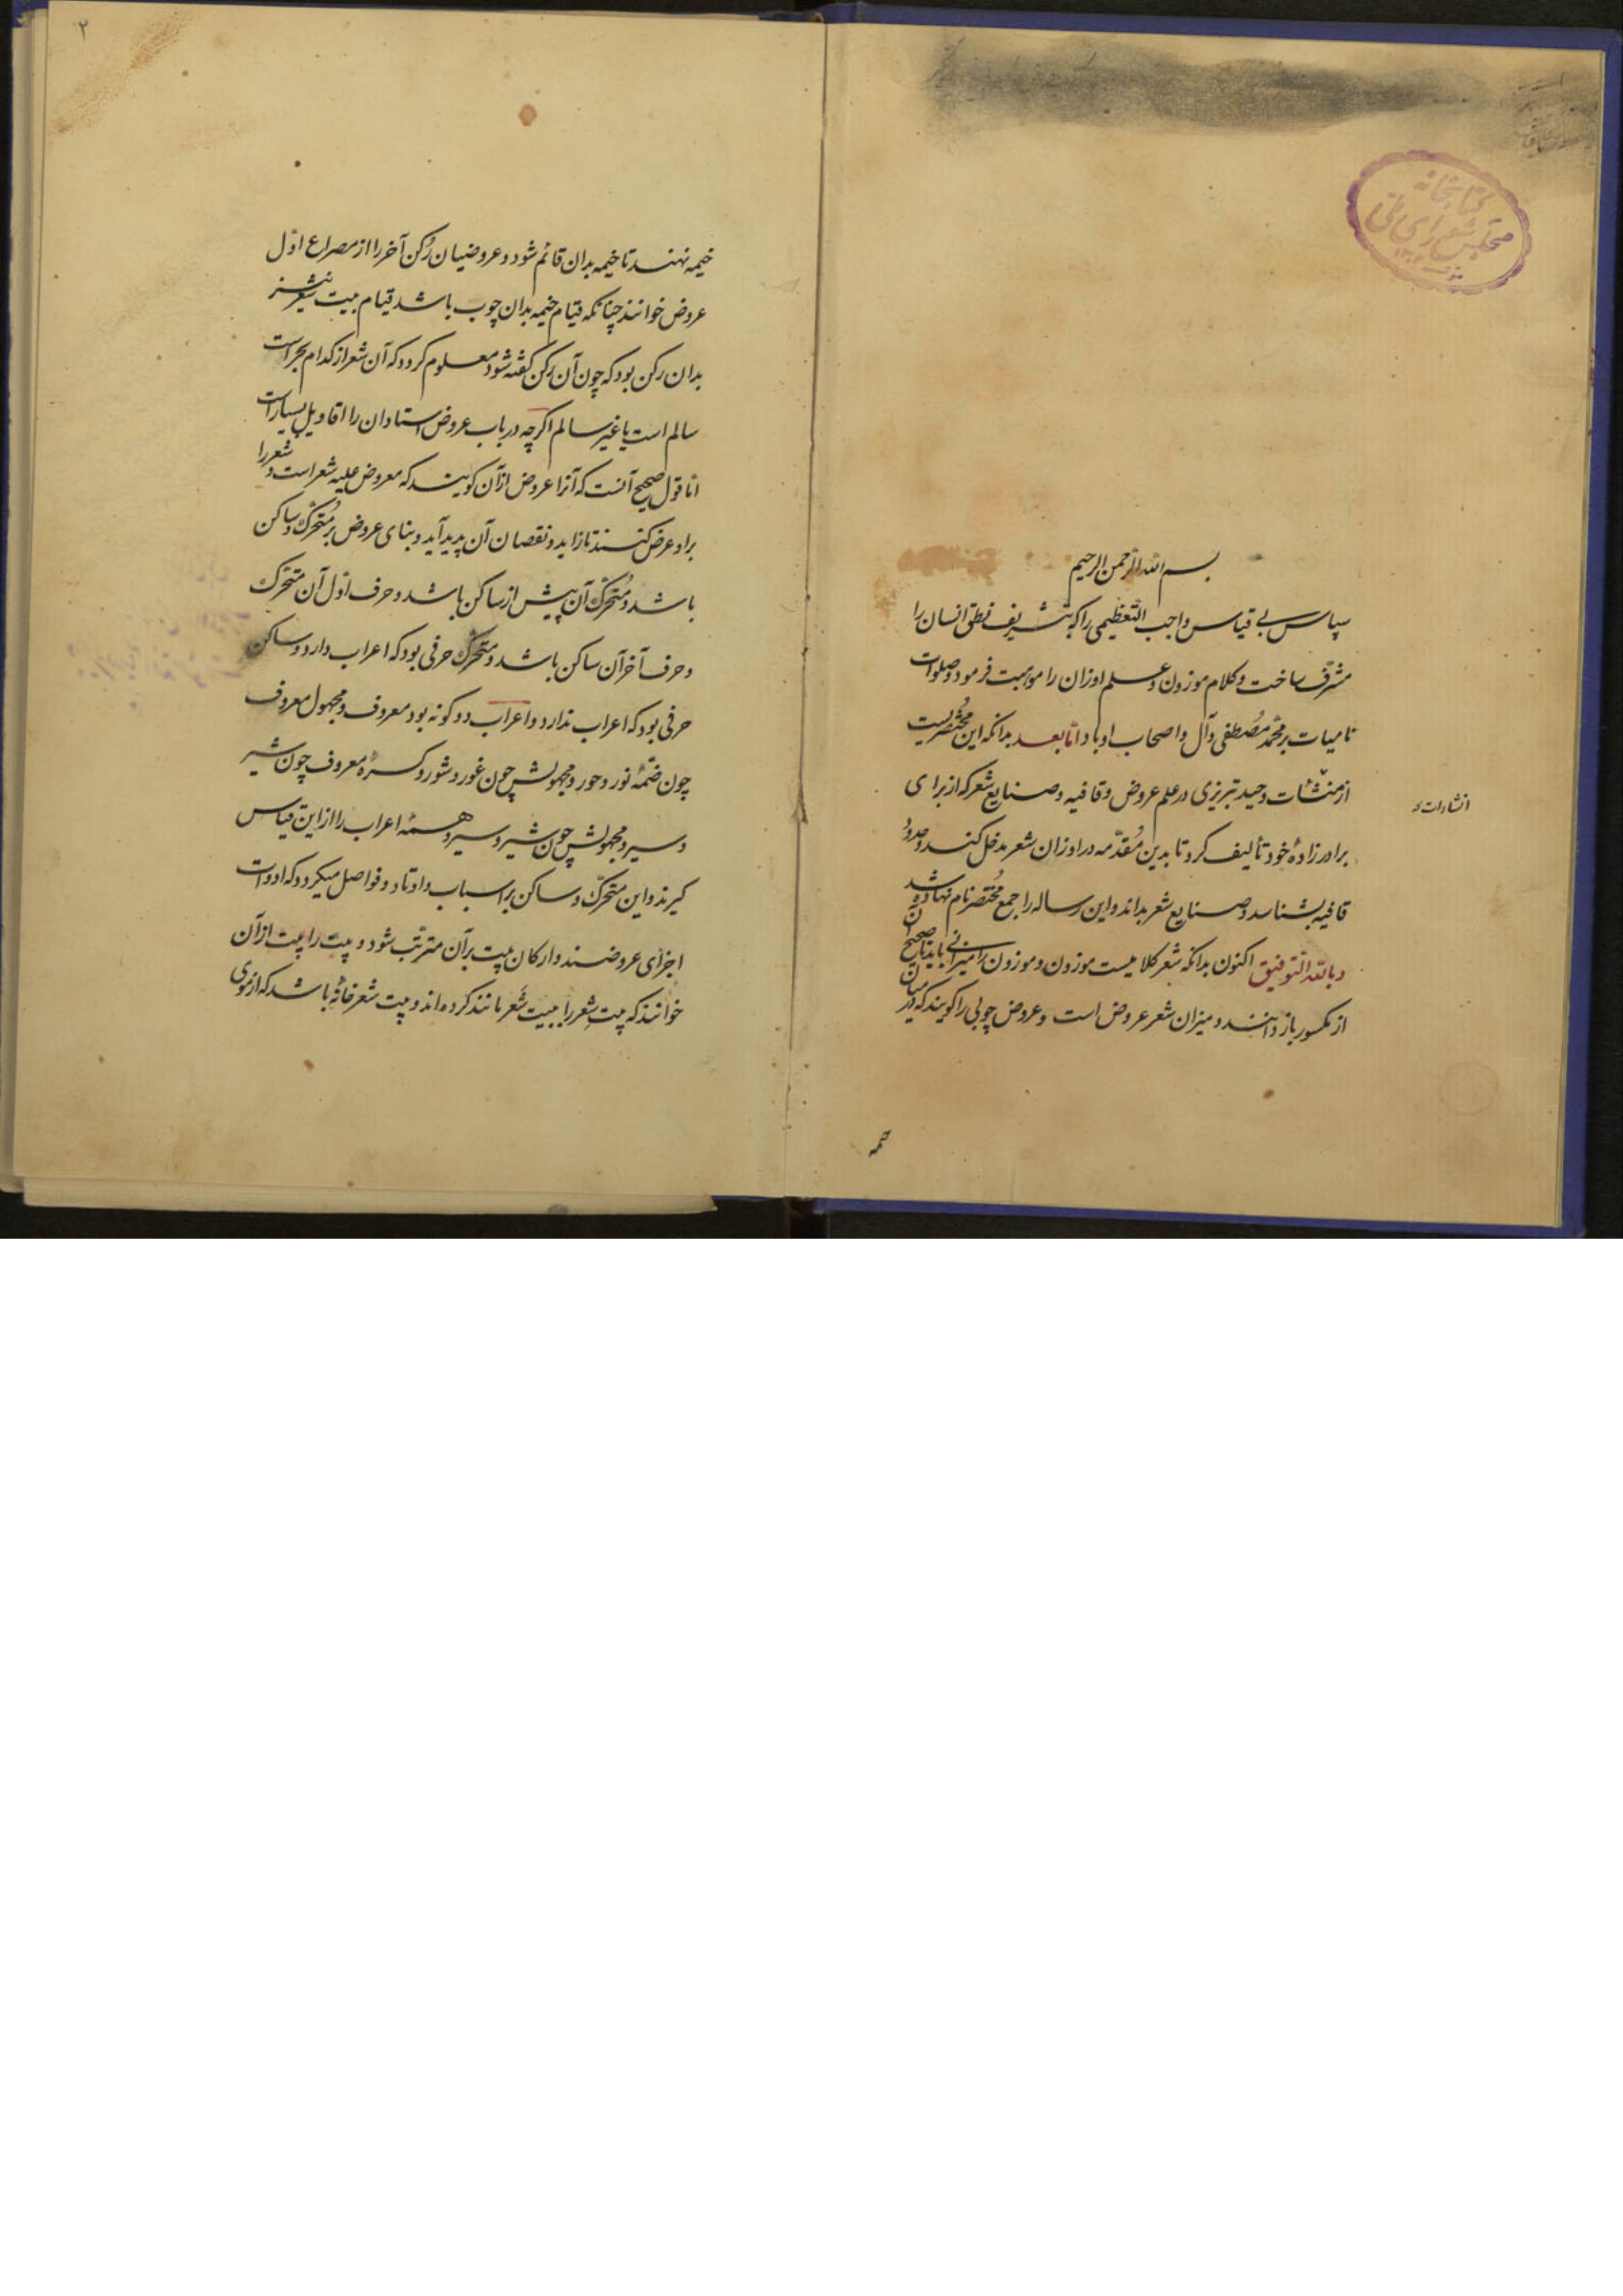 کتابخانه
مجلس شورای ملی
بسم الله الرحمن الرحیم
سپاس بی قیاس واجب التعظیمی را که بتشریف نطق انسان را
مشرّف ساخت و کلام موزون و علم اوزان را موهبت فرمود و صلوات
نامیات بر محمّد مُصطفی و آل و اصحاب او باد امّا بعد بدانکه این مُختصریست
از منشآت وحید تبریزی در علم عروض و قافیه و صنایع شعر که از برای
انشارات
برادرزادهٔ خود تألیف کرد تا بدین مُقدّمه در اوزان شعر مدخل کند و حدود
قافیه بشناسد و صنایع شعر بداند و این رساله را جمع مُختصر نام نهاده شد
و بالله التّوفیق اکنون بدانکه شعر کلامیست موزون و موزون را میزانی باید تا صحیح آن
از مکسور باز دانند و میزان شعر عروض است و عروض چوبی را گویند که در میان
خیمه
۲
خیمه نهند تا خیمه بدان قائم شود و عروضیان رُکن آخر را از مصراع اوّل
عروض خوانند چنانکه قیام خیمه بدان چوب باشد قیام بیت شعر نیز
بدان رکن بود که چون آن رکن گفته شود معلوم گردد که آن شعر از کدام بحر است
سالم است یا غیر سالم اگرچه در باب عروض استادان را اقاویل بسیار است
امّا قول صحیح آنست که آنرا عروض از آن گویند که معروض علیه شعر است و شعر را
بر او عرض کنند تا زاید و نقصان آن پدید آید و بنای عروض بر مُتحرّک و ساکن
باشد و مُتحرّک آن پیش از ساکن باشد و حرف اوّل آن متحرّک
و حرف آخر آن ساکن باشد و متحرّک حرفی بود که اعراب دارد و ساکن
حرفی بود که اعراب ندارد و اعراب دو گونه بود معروف و مجهول معروف
چون ضمّهٔ نور و حور و مجهولش چون غور و شور و کسرهٔ معروف چون شیر
و سیر و مجهولش چون شیر و سیر و همهٔ اعراب را از این قیاس
گیرند و این متحرّک و ساکن بر اسباب و اوتاد و فواصل میگردد که ادوات
اجزای عروضند و ارکان بیت بر آن مترتّب شود و بیت را بیت از آن
خوانند که بیت شِعر را ببیت شَعر مانند کرده‌اند و بیت شعر خانهٔ باشد که از موی